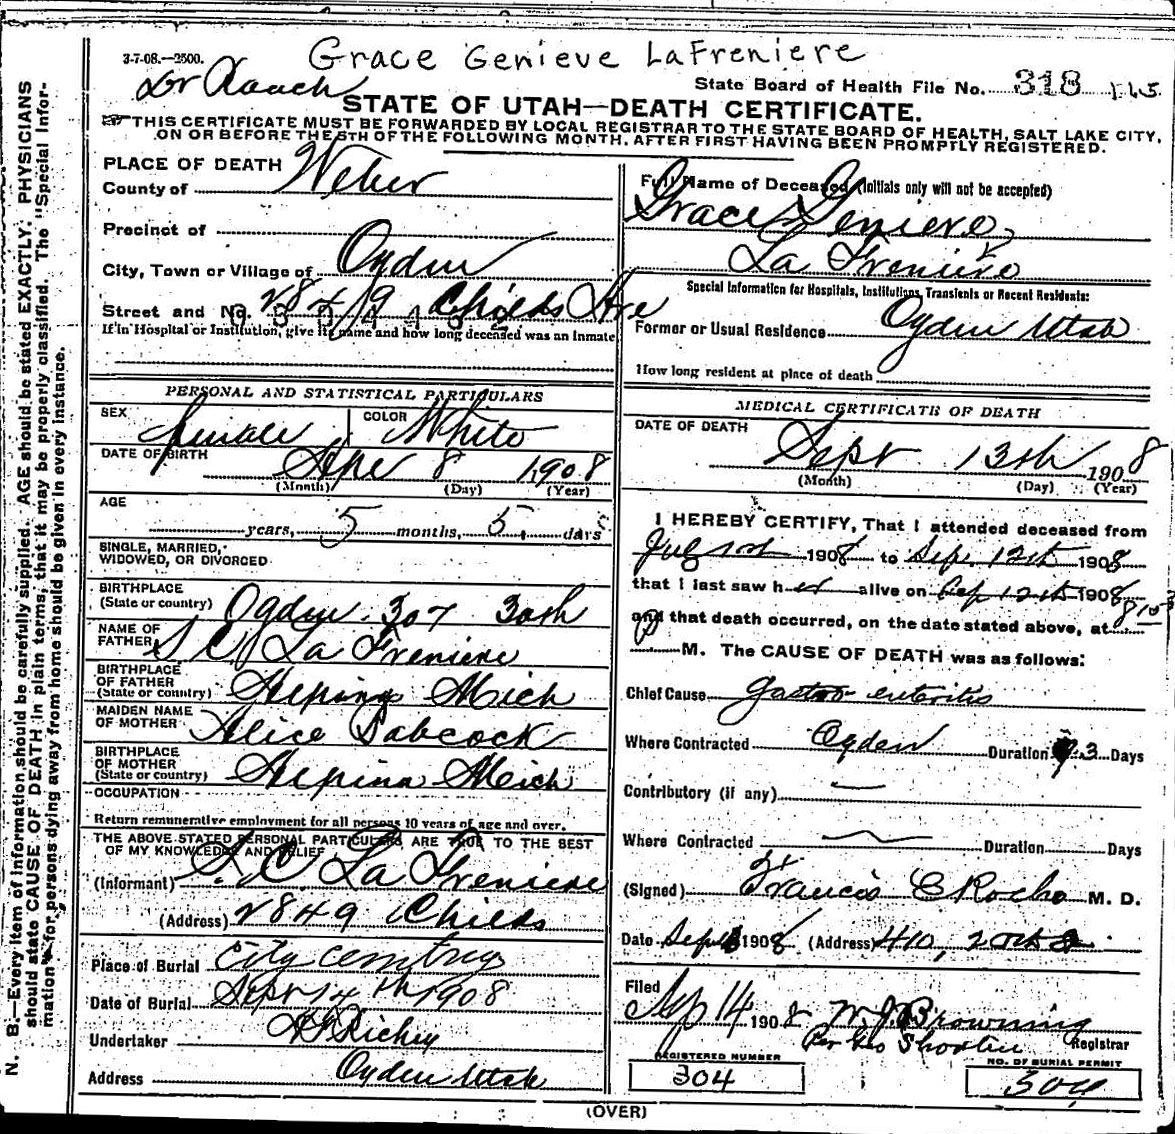 3-7-08.—2500.
Grace Genieve LaFreniere
State Board of Health File No. 318
STATE OF UTAH—DEATH CERTIFICATE.
THIS CERTIFICATE MUST BE FORWARDED BY LOCAL REGISTRAR TO THE STATE BOARD OF HEALTH, SALT LAKE CITY,
ON OR BEFORE THE 5TH OF THE FOLLOWING MONTH, AFTER FIRST HAVING BEEN PROMPTLY REGISTERED.
PLACE OF DEATH
County of Weber
Precinct of
City, Town or Village of Ogden
Street and No. 2849 Childs Ave
If in Hospital or Institution, give its name and how long deceased was an Inmate
PERSONAL AND STATISTICAL PARTICULARS
SEX female COLOR White
DATE OF BIRTH
8 1908
(Month) (Day) (Year)
AGE
years, 5 months, 5 days
SINGLE, MARRIED,
WIDOWED, OR DIVORCED
BIRTHPLACE
(State or country) Ogden 307 30th
NAME OF
FATHER S C La Freniere
BIRTHPLACE
OF FATHER
(State or country) Alpina Mich
MAIDEN NAME
OF MOTHER Alice Babcock
BIRTHPLACE
OF MOTHER
(State or country) Alpina Mich
OCCUPATION
Return remunerative employment for all persons 10 years of age and over.
THE ABOVE STATED PERSONAL PARTICULARS ARE TRUE TO THE BEST
OF MY KNOWLEDGE AND BELIEF
(Informant) S. C La Freniere
(Address) 2849 Childs
Place of Burial City Cemtry
Date of Burial Sept 14th 1908
Undertaker Richey
Address Ogden Utah
Full Name of Deceased (Initials only will not be accepted)
Grace Genieve
La Freniere
Special Information for Hospitals, Institutions, Transients or Recent Residents:
Former or Usual Residence Ogden Utah
How long resident at place of death
MEDICAL CERTIFICATE OF DEATH
DATE OF DEATH
Sept 13th 1908
(Month) (Day) (Year)
I HEREBY CERTIFY, That I attended deceased from
July 1st 1908 to Sep. 12th 1908
that I last saw her alive on Sep 12th 1908
and that death occurred, on the date stated above, at 8 10
P M. The CAUSE OF DEATH was as follows:
Chief Cause gastro-enteritis
Where Contracted Ogden Duration 3 Days
Contributory (if any) —
Where Contracted Duration Days
(Signed) Francis E Roche M. D.
Date Sept 1908 (Address) 410,
Filed
Sep 14 1908 W J Browning
Per Geo Shorten Registrar
REGISTERED NUMBER
304
NO. OF BURIAL PERMIT
304
(OVER)
N. B.—Every item of information should be carefully supplied. AGE should be stated EXACTLY. PHYSICIANS
should state CAUSE OF DEATH in plain terms, that it may be properly classified. The "Special Infor-
mation" for persons dying away from home should be given in every instance.